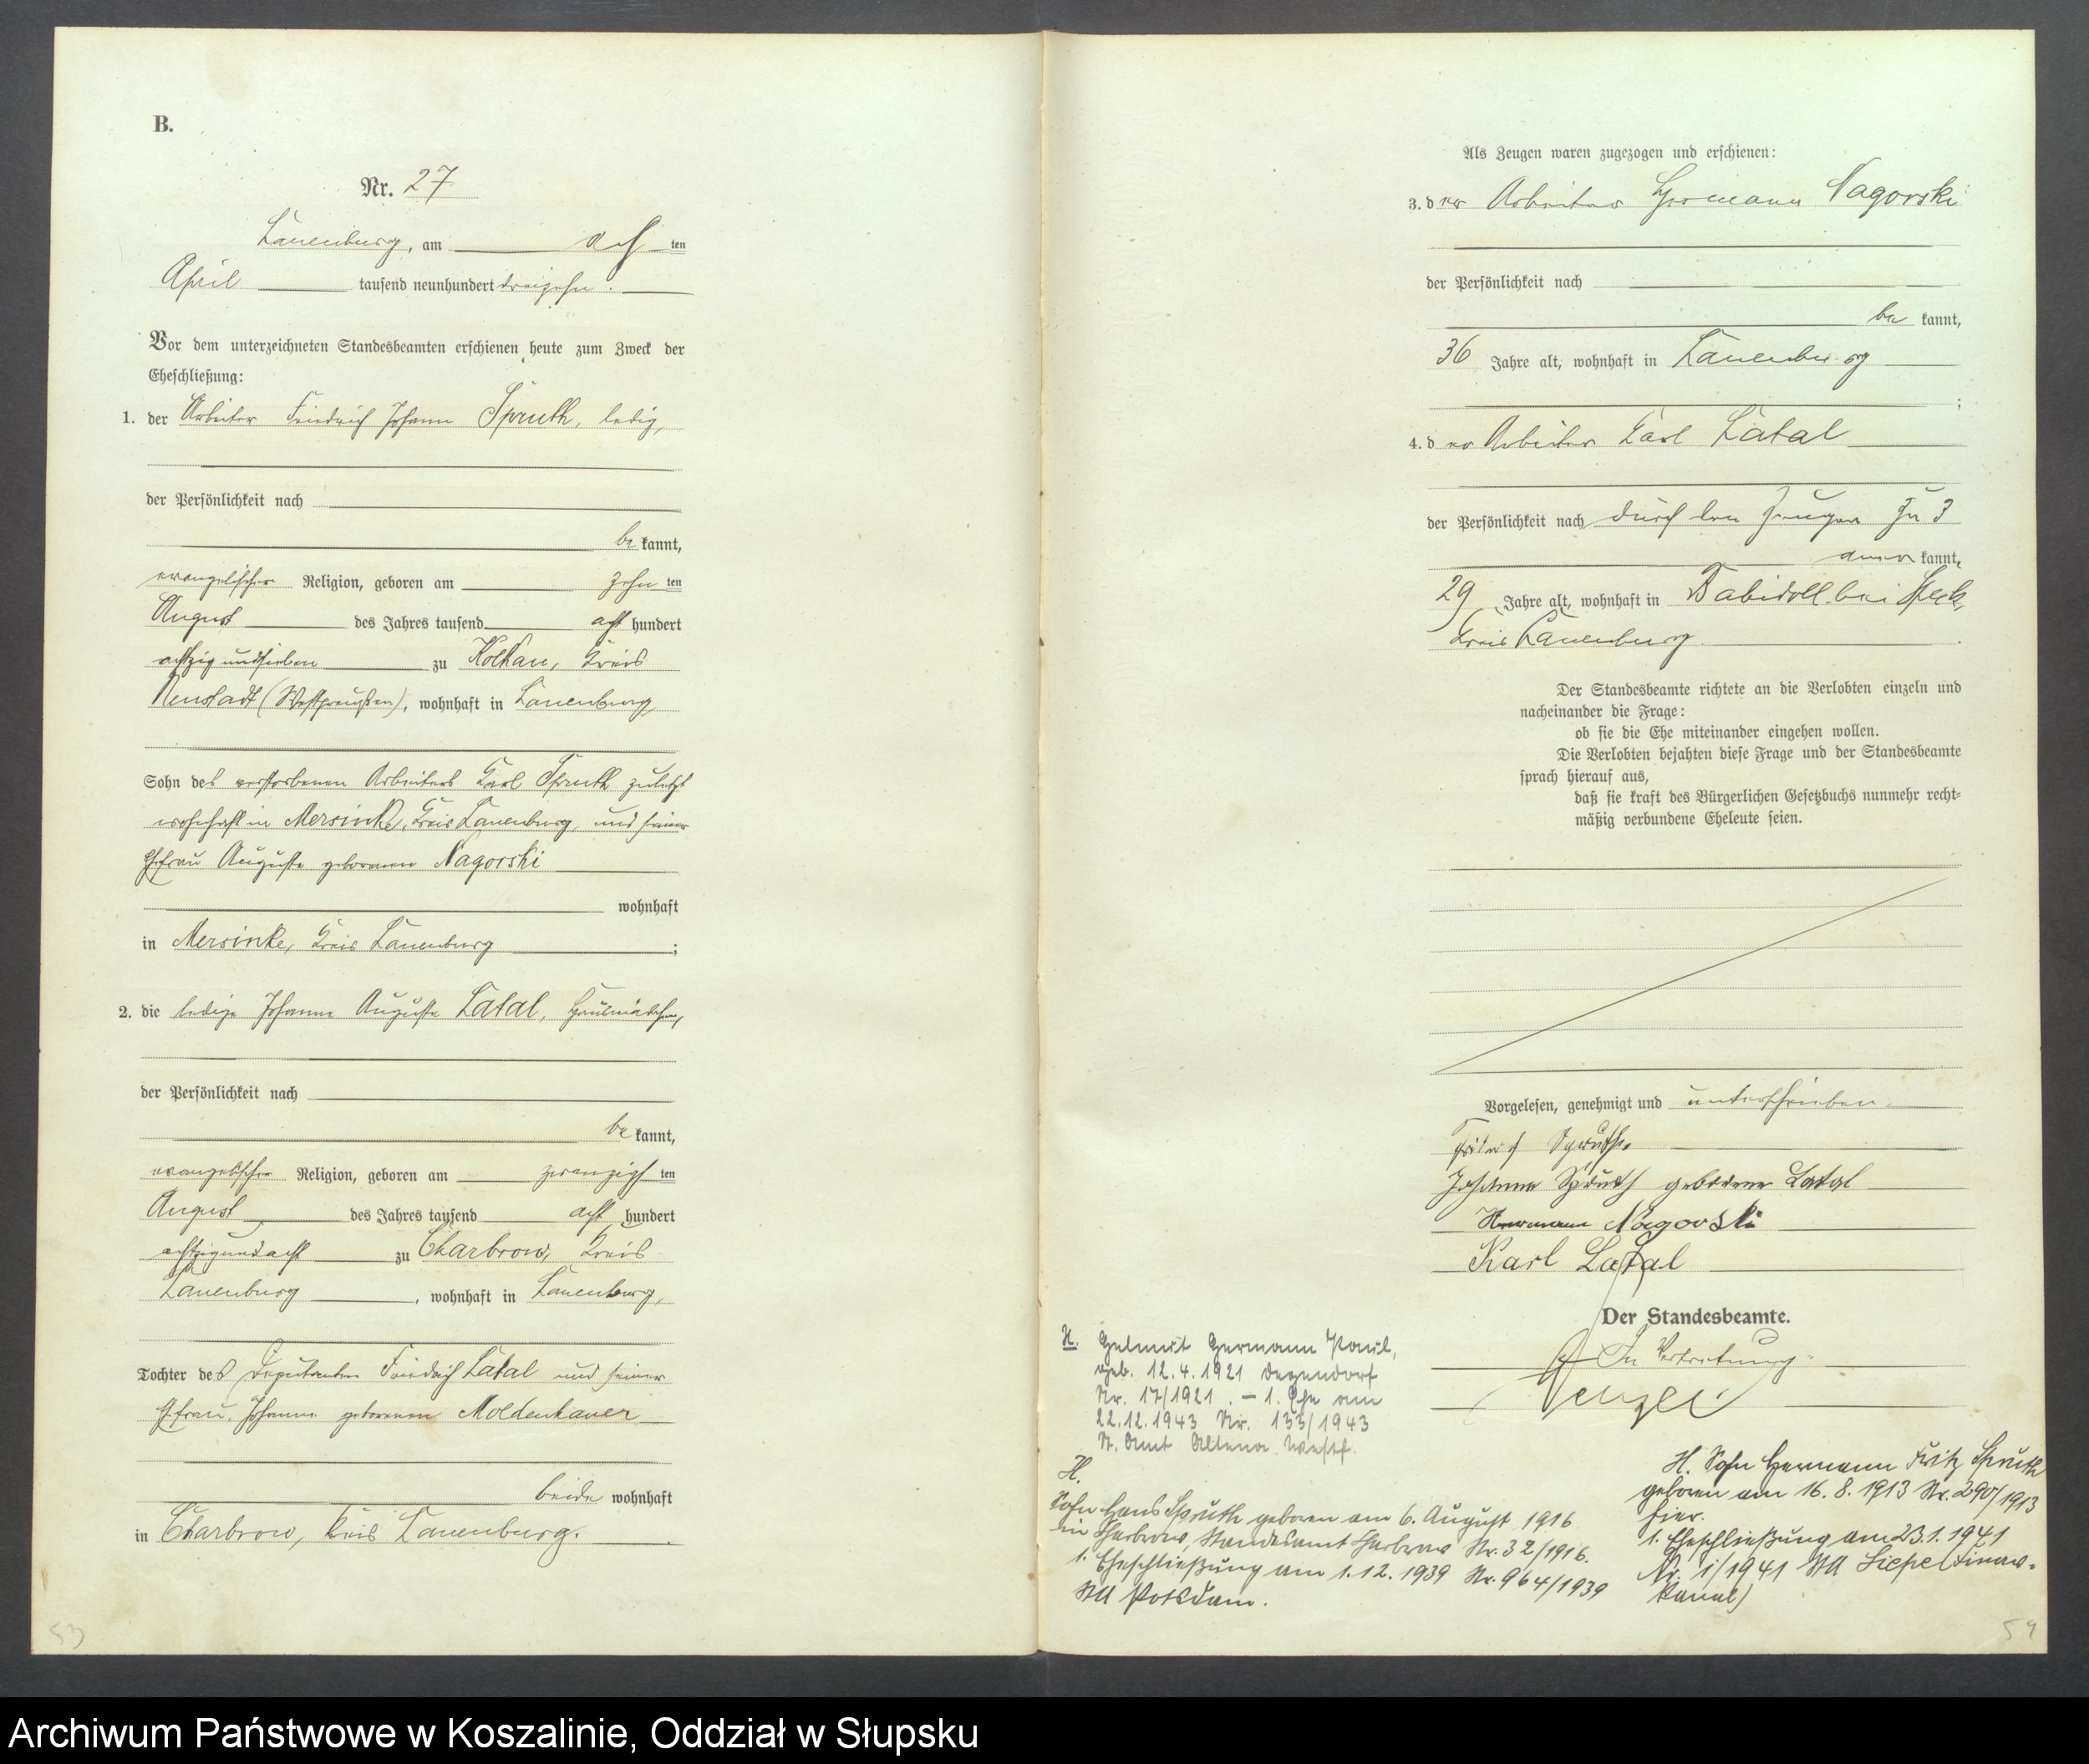 B.
Nr. 27
Lauenburg, am acht ten
April tausend neunhundert dreizehn.
Vor dem unterzeichneten Standesbeamten erschienen heute zum Zweck der
Eheschließung:
1. der Arbeiter Friedrich Johann Spruth, ledig,
der Persönlichkeit nach
be kannt,
evangelischer Religion, geboren am zehn ten
August des Jahres tausend acht hundert
achtzig und sieben zu Kolkau, Kreis
Neustadt (Westpreußen), wohnhaft in Lauenburg
Sohn des verstorbenen Arbeiters Karl Spruth zuletzt
wohnhaft in Mersinke, Kreis Lauenburg, und seiner
Ehefrau Auguste geborenen Nagorski
wohnhaft
in Mersinke, Kreis Lauenburg ;
2. die ledige Johanna Auguste Latal, Hausmädchen,
der Persönlichkeit nach
be kannt,
evangelischer Religion, geboren am zwanzigst ten
August des Jahres tausend acht hundert
achtzigundacht zu Charbrow, Kreis
Lauenburg, wohnhaft in Lauenburg,
Tochter des Deputanten Friedrich Latal und seiner
Ehefrau, Johanna geborenen Moldenhauer
beide wohnhaft
in Charbrow, Kreis Lauenburg.
53
Als Zeugen waren zugezogen und erschienen:
3. der Arbeiter Hermann Nagorski
der Persönlichkeit nach
be kannt,
36 Jahre alt, wohnhaft in Lauenburg
;
4. der Arbeiter Karl Latal
der Persönlichkeit nach durch den Zeugen zu 3
aner kannt,
29 Jahre alt, wohnhaft in Babidoll bei Speck,
Kreis Lauenburg.
Der Standesbeamte richtete an die Verlobten einzeln und
nacheinander die Frage:
ob sie die Ehe miteinander eingehen wollen.
Die Verlobten bejahten diese Frage und der Standesbeamte
sprach hierauf aus,
daß sie kraft des Bürgerlichen Gesetzbuchs nunmehr recht-
mäßig verbundene Eheleute seien.
Vorgelesen, genehmigt und unterschrieben.
Spruth.
Johanna Spruth geborene Latal
Hermann Nagorski
Karl Latal
Der Standesbeamte.
In Vertretung.
H. Helmut Hermann Paul,
geb. 12.4.1921 Degendorf
Nr. 17/1921. – 1. Ehe am
22.12.1943 Nr. 133/1943
St. Amt Altena Westf.
H.
Sohn Hans Spruth geboren am 6. August 1916
in Charbrow, Standesamt Charbrow Nr. 32/1916.
1. Eheschließung am 1.12.1939 Nr. 964/1939
StA Potsdam.
H. Sohn Hermann Fritz Spruth
geboren am 16.8.1913 Nr. 290/1913
hier.
1. Eheschließung am 23.1.1941
Nr. 1/1941 StA Liepe (Finow-
kanal)
54
Archiwum Państwowe w Koszalinie, Oddział w Słupsku